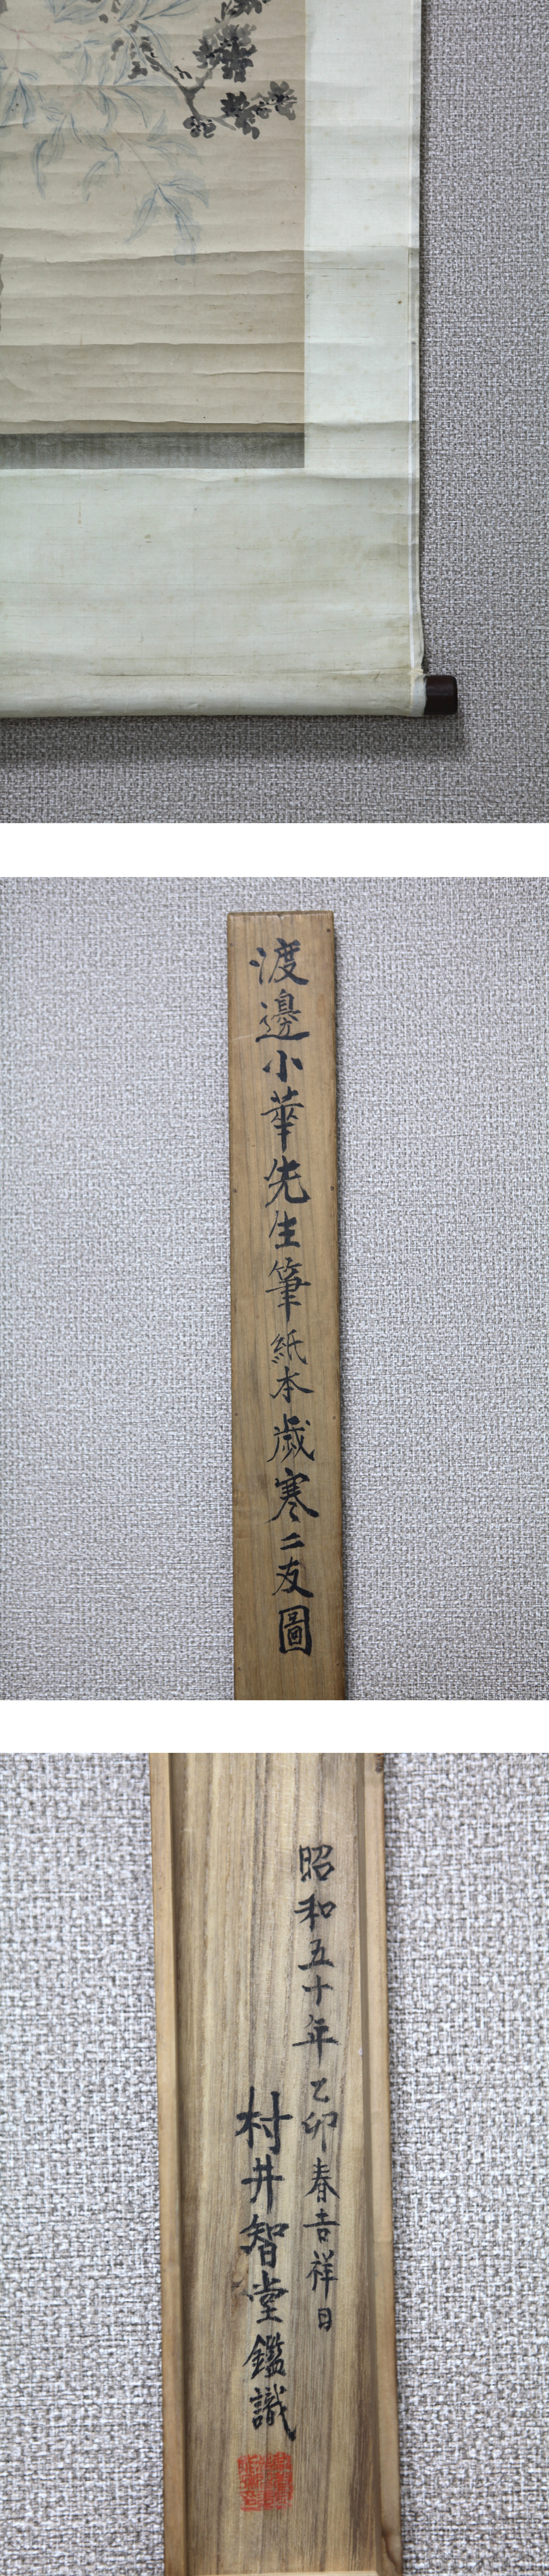 渡邊小華先生筆紙本歳寒二友圖
昭和五十年乙卯春吉祥日
村井智堂鑑識